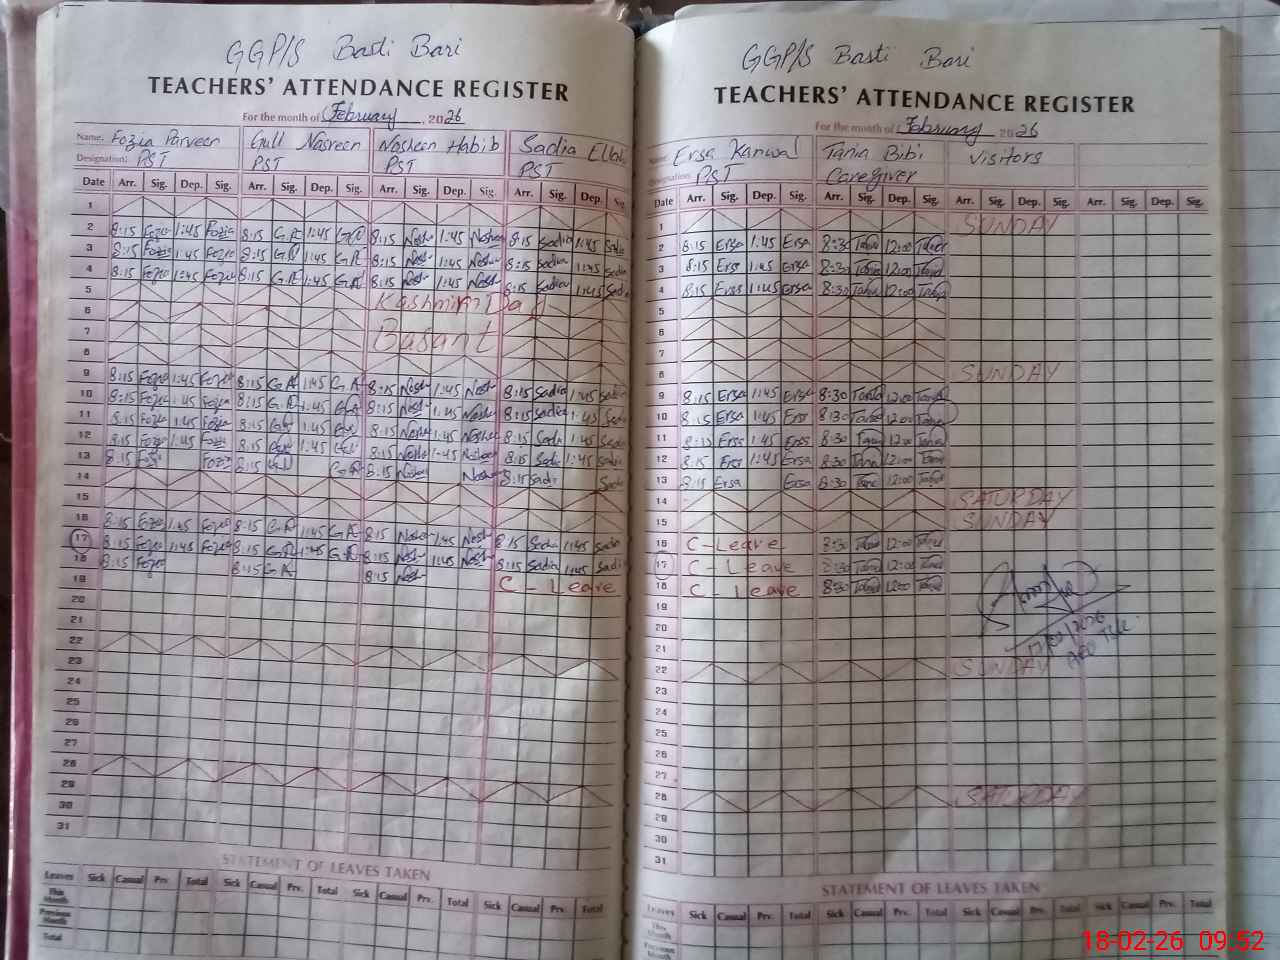 GGP/S Basti Bari
TEACHERS' ATTENDANCE REGISTER
For the month of February, 2026
Name: Fozia Parveen Gull Nasreen Nosheen Habib Sadia Ellahi
Designation: PST PST PST PST
Date Arr. Sig. Dep. Sig. Arr. Sig. Dep. Sig. Arr. Sig. Dep. Sig. Arr. Sig. Dep. Sig.
1
2 8:15 Fozia 1:45 Fozia 8:15 G.R 1:45 G.R 8:15 Nosh 1:45 Nosheen 8:15 Sadia 1:45 Sadia
3 8:15 Fozia 1:45 Fozia 8:15 G.R 1:45 G.R 8:15 Nosh 1:45 Nosh 8:15 Sadia 1:45 Sadia
4 8:15 Fozia 1:45 Fozia 8:15 G.R 1:45 G.R 8:15 Nosh 1:45 Nosh 8:15 Sadia 1:45 Sadia
5 Kashmir Day
6
7 Basant
8
9 8:15 Fozia 1:45 Fozia 8:15 G.R 1:45 G.R 8:15 Nosh 1:45 Nosh 8:15 Sadia 1:45 Sadia
10 8:15 Fozia 1:45 Fozia 8:15 G.R 1:45 G.R 8:15 Nosh 1:45 Nosheen 8:15 Sadia 1:45 Sadia
11 8:15 Fozia 1:45 Fozia 8:15 1:45 8:15 Nosh 1:45 Nosheen 8:15 Sadia 1:45 Sadia
12 8:15 Fozia 1:45 Fozia 8:15 1:45 8:15 Nosh 1:45 Nosheen 8:15 Sadia 1:45 Sadia
13 8:15 Fozia Fozia 8:15 G.R 8:15 Nosh 8:15 Sadia Sadia
14
15
16 8:15 Fozia 1:45 Fozia 8:15 G.R 1:45 G.R 8:15 Nosh 1:45 Nosh 8:15 Sadia 1:45 Sadia
17 8:15 Fozia 1:45 Fozia 8:15 G.R 1:45 G.R 8:15 Nosh 1:45 Nosh 8:15 Sadia 1:45 Sadia
18 8:15 Fozia 8:15 G.R 8:15 Nosh C - Leave
19
20
21
22
23
24
25
26
27
28
29
30
31
STATEMENT OF LEAVES TAKEN
Leaves Sick Casual Prv. Total Sick Casual Prv. Total Sick Casual Prv. Total Sick Casual Prv. Total
This Month
Previous Month
Total
GGP/S Basti Bari
TEACHERS' ATTENDANCE REGISTER
For the month of February 2026
Name: Ersa Kanwal Tania Bibi Visitors
Designation: PST Caregiver
Date Arr. Sig. Dep. Sig. Arr. Sig. Dep. Sig. Arr. Sig. Dep. Sig. Arr. Sig. Dep. Sig.
1 SUNDAY
2 8:15 Ersa 1:45 Ersa 8:30 Tania 12:00 Tania
3 8:15 Ersa 1:45 Ersa 8:30 Tania 12:00 Tania
4 8:15 Ersa 1:45 Ersa 8:30 Tania 12:00 Tania
5
6
7
8 SUNDAY
9 8:15 Ersa 1:45 Ersa 8:30 Tania 12:00 Tania
10 8:15 Ersa 1:45 Ersa 8:30 Tania 12:00 Tania
11 8:15 Ersa 1:45 Ersa 8:30 Tania 12:00 Tania
12 8:15 Ersa 1:45 Ersa 8:30 Tania 12:00 Tania
13 8:15 Ersa Ersa 8:30 Tania 12:00 Tania
14 SATURDAY
15 SUNDAY
16 C-Leave 8:30 Tania 12:00 Tania
17 C-Leave 8:30 Tania 12:00 Tania
18 C-Leave 8:30 Tania 12:00 Tania
19
20
21
22 SUNDAY
23
24
25
26
27
28 SATURDAY
29
30
31
STATEMENT OF LEAVES TAKEN
Leaves Sick Casual Prv. Total Sick Casual Prv. Total Sick Casual Prv. Total Sick Casual Prv. Total
This Month
Previous Month
18-02-26 09:52